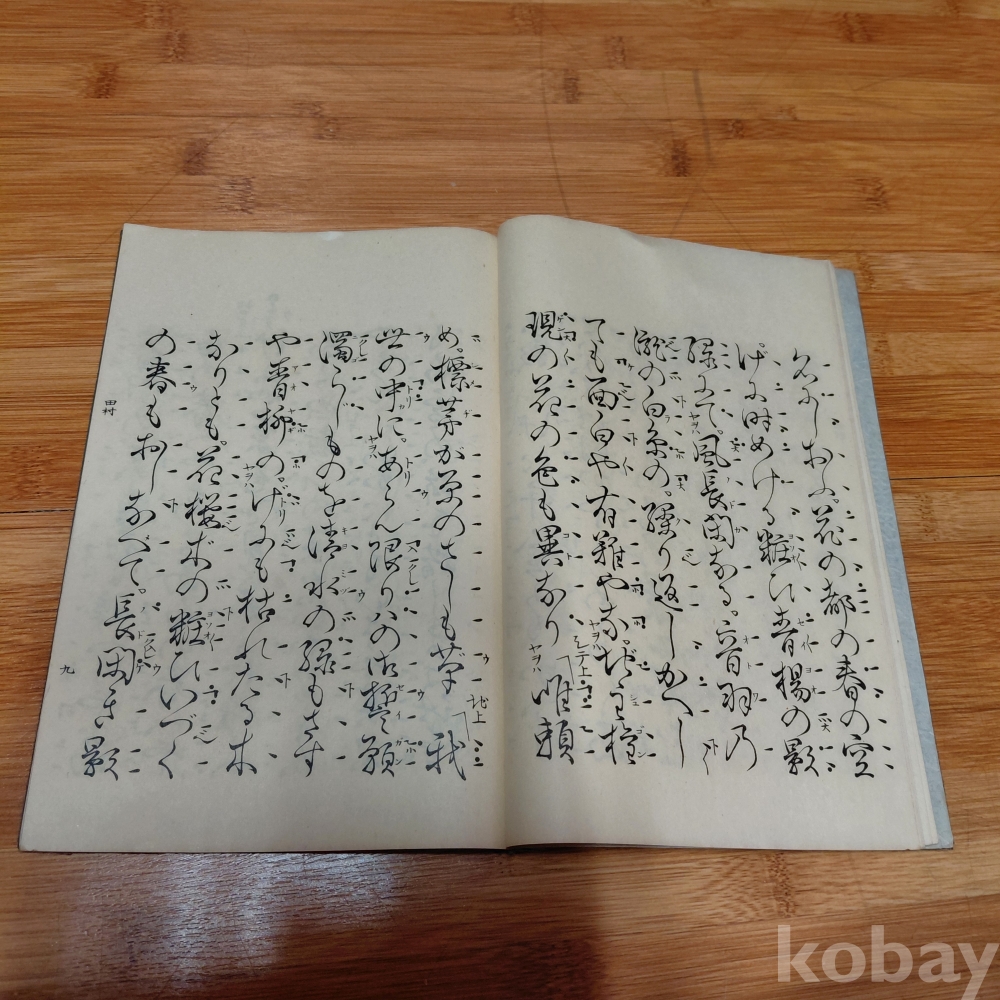 名にしおふ。花の都の春の空
。げに時めける粧ひ青楊の影
緑にて。風長閑なる。音羽乃
瀧の白糸の。繰り返しかへし
ても面白や有難やな。地主権
現の花の色も異なり シテ上 唯頼
め。標茅が原のさしも草 地上 我
世の中に。あらん限りハの御誓願
濁らじものを清水の緑もさす
や青柳の。げにも枯れたる木
なりとも。花櫻木の粧ひいづく
の春もおしなべて。長閑き影
田村
九
kobay